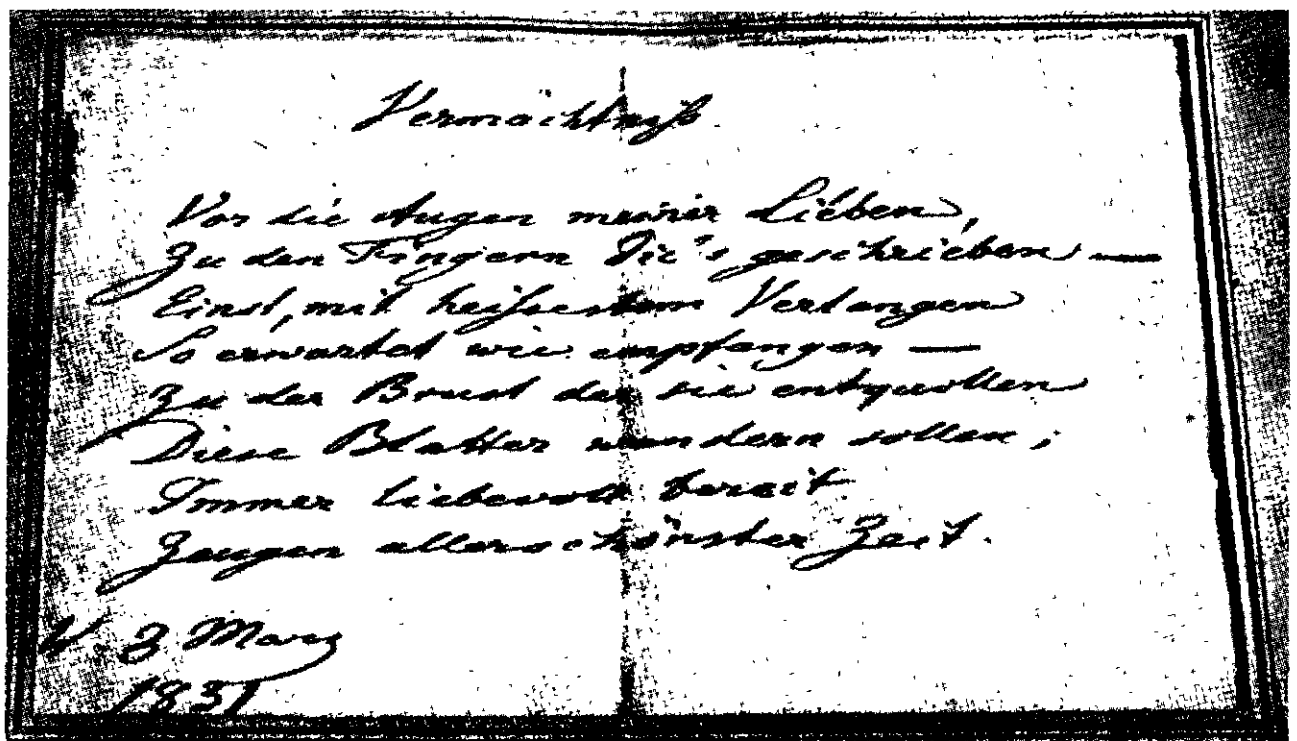 Vermächtniß
Vor die Augen meiner Lieben,
Zu den Fingern die's geschrieben —
Einst, mit heißestem Verlangen
So erwartet wie empfangen —
Zu der Brust der sie entquollen
Diese Blätter wandern sollen;
Immer liebevoll bereit
Zeugen allerschönster Zeit.
W 3 Marz
1831